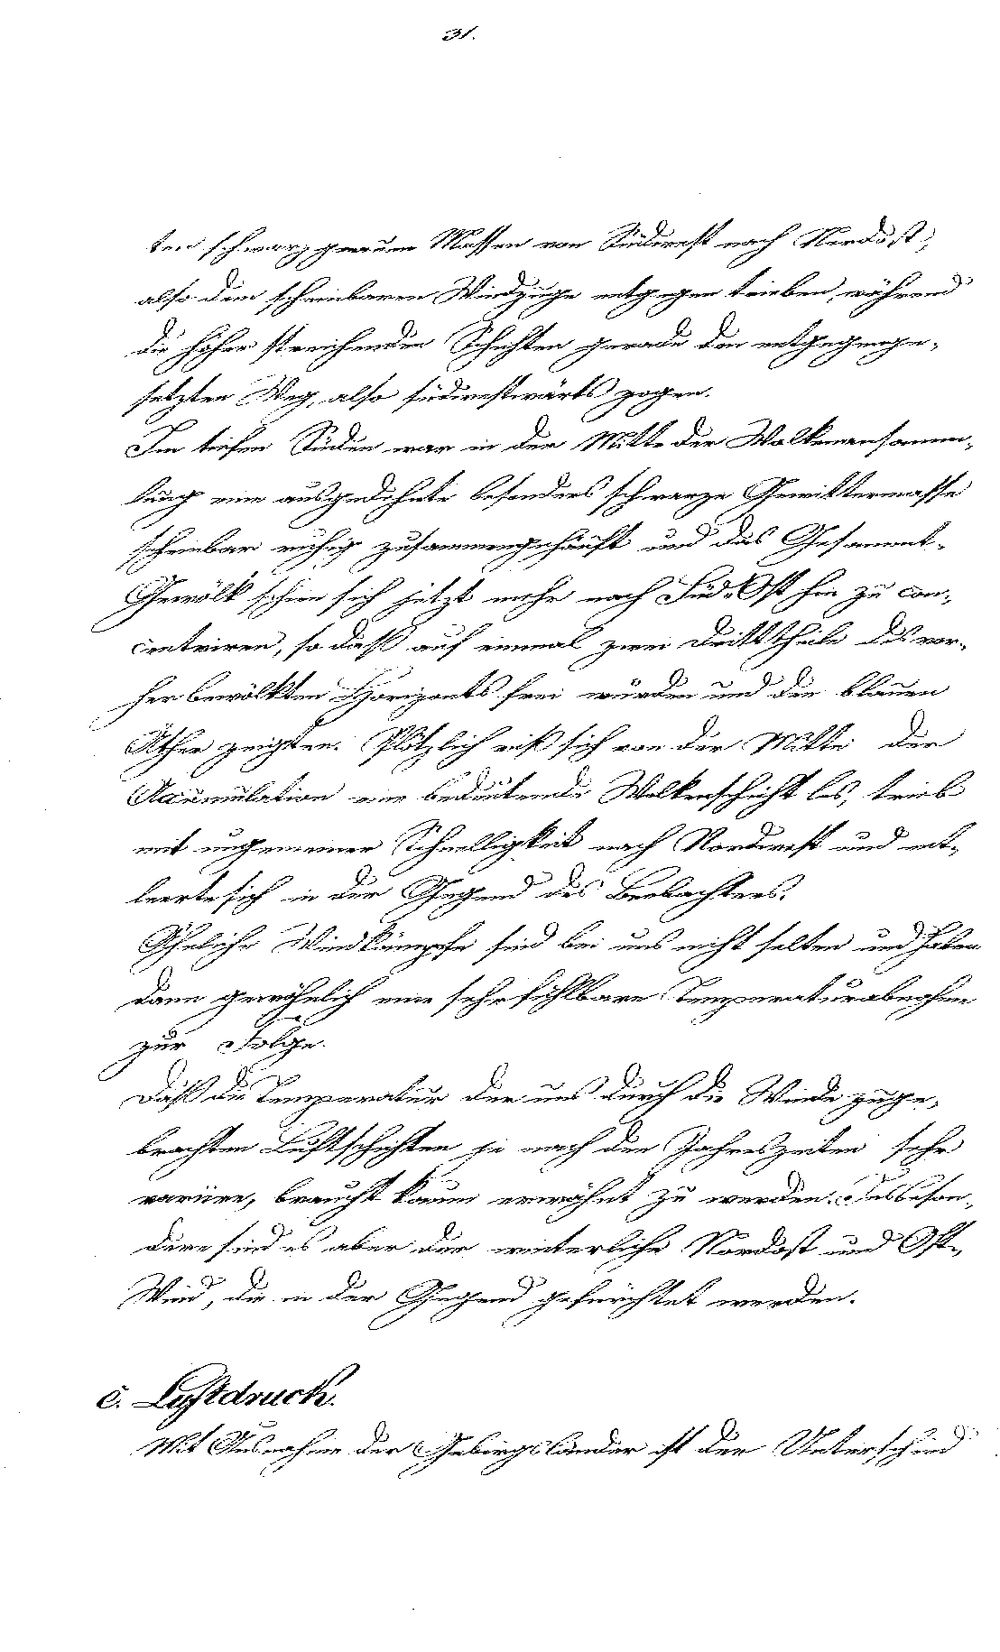 31.
ten schwarzgrauen Massen von Südwest nach Nordost,
also dem scheinbaren Windzuge entgegen trieben, während
die höher streichenden Schichten gerade den entgegenge-
setzten Weg, also südwestwärts zogen.
Im tiefen Süden war in der Mitte der Wolkenansamm-
lung eine ausgedehnte besonders schwarze Gewittermasse
scheinbar ruhig zusammengehäuft und das Gesammt-
Gewölk schien sich jetzt mehr nach Süd-Ost hin zu con-
centriren, so daß auf einmal zwei Drittttheile des vor-
her bewölkten Horizonts frei wurden und den blauen
Äther zeigten. Plötzlich riß sich von der Mitte der
Accumulation eine bedeutende Wolkenschicht los, trieb
mit ungemeiner Schnelligkeit nach Nordwest und ent-
leerte sich in der Gegend des Beobachters.
Ähnliche Windkämpfe sind bei uns nicht selten und haben
dann gewöhnlich eine sehr fühlbare Temperaturabnahme
zur Folge.
Daß die Temperatur der uns durch die Winde zuge-
brachten Luftschichten je nach den Jahreszeiten sehr
variire, braucht kaum erwähnt zu werden. Insbeson-
dere sind es aber der winterliche Nordost und Ost-
Wind, die in der Gegend gefürchtet werden.
c. Luftdruck.
Mit Ausnahme der Gebirgsländer ist der Unterschied